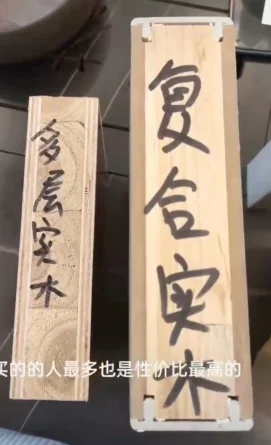 多层实木
复合实木
买的的人最多也是性价比最高的